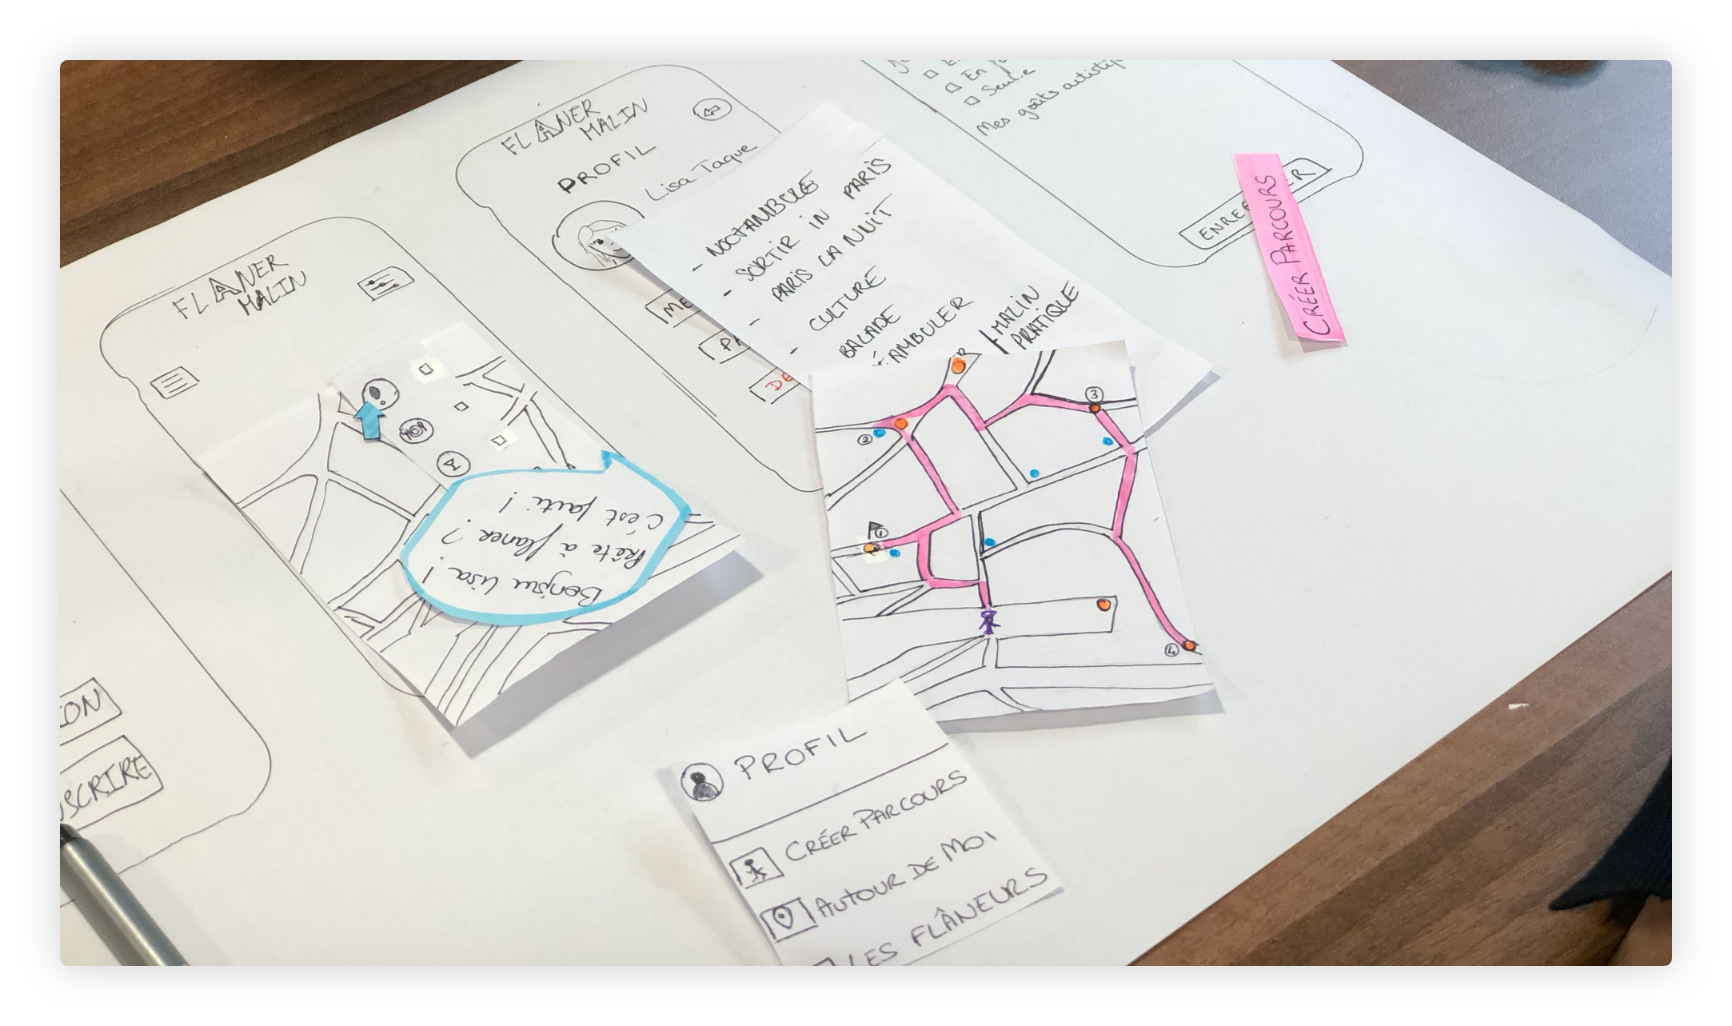 FLANER
MALIN
FLANER
MALIN
PROFIL
Lisa Taque
ME
PA
DE
- NOCTAMBULE
- SORTIR IN PARIS
- PARIS LA NUIT
- CULTURE
BALADE
MALIN
PRATIQUE
En
Seule
Mes goûts artistiq
ENRE
R
CRÉER PARCOURS
Bonjour Lisa !
Prête à flaner ?
C'est parti !
2
3
1
4
ION
SCRIRE
PROFIL
CRÉER PARCOURS
AUTOUR DE MOI
LES FLÂNEURS